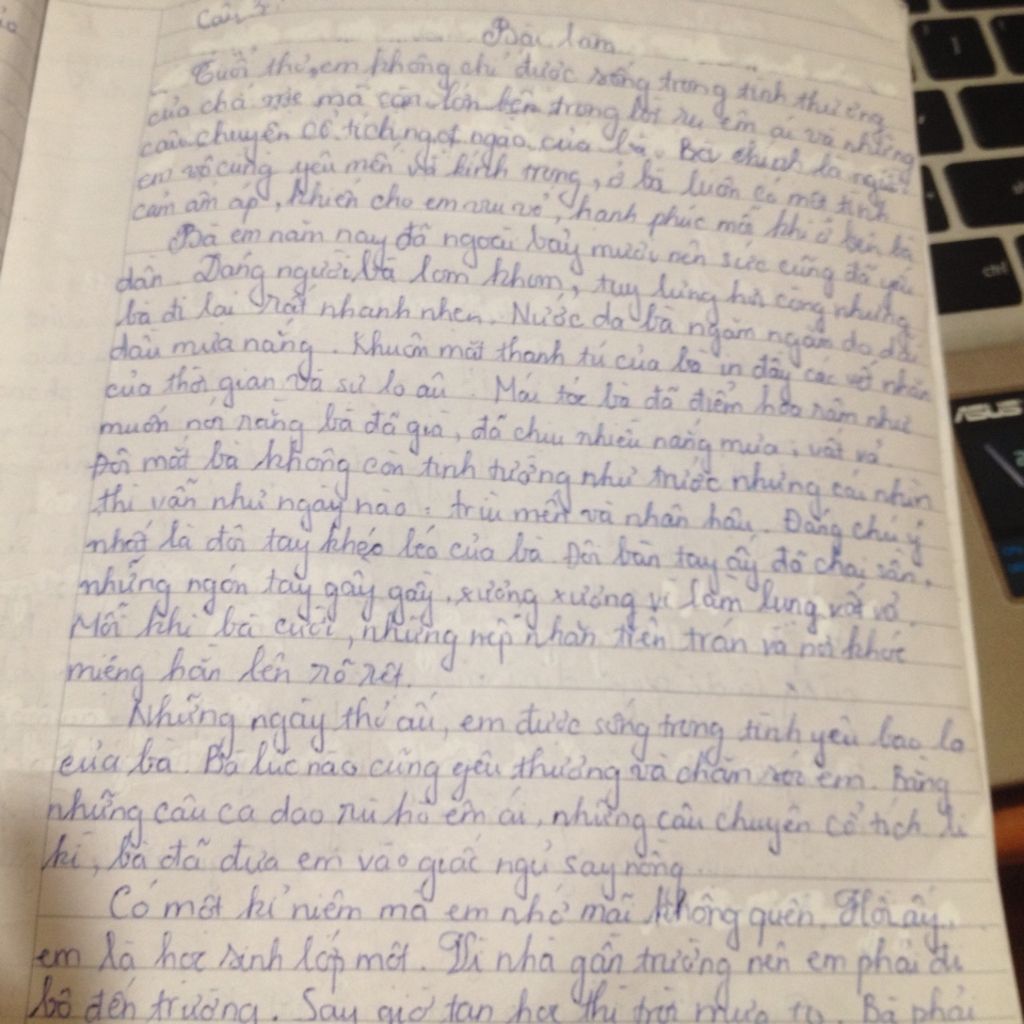 Câu 3
Bài làm
Tuổi thơ, em không chỉ được sống trong tình thương
của cha mẹ mà còn lớn lên trong lời ru êm ái và những
câu chuyện cổ tích ngọt ngào của bà. Bà chính là người
em vô cùng yêu mến và kính trọng, ở bà luôn có một tình
cảm ấm áp, khiến cho em vui vẻ, hạnh phúc mỗi khi ở bên bà
Bà em năm nay đã ngoài bảy mươi nên sức cũng đã yếu
dần. Dáng người bà lom khom, tuy lưng hơi còng nhưng
bà đi lại rất nhanh nhẹn. Nước da bà ngăm ngăm do dãi
dầu mưa nắng. Khuôn mặt thanh tú của bà in đầy các vết nhăn
của thời gian và sự lo âu. Mái tóc bà đã điểm hoa râm như
muốn nói rằng bà đã già, đã chịu nhiều nắng mưa, vất vả.
Đôi mắt bà không còn tinh tường như trước nhưng cái nhìn
thì vẫn như ngày nào: trìu mến và nhân hậu. Đáng chú ý
nhất là đôi tay khéo léo của bà. Đôi bàn tay ấy đã chai sần,
những ngón tay gầy gầy, xương xương vì làm lụng vất vả.
Mỗi khi bà cười, những nếp nhăn trên trán và nơi khóe
miệng hằn lên rõ rệt.
Những ngày thơ ấu, em được sống trong tình yêu bao la
của bà. Bà lúc nào cũng yêu thương và chăm sóc em. Bằng
những câu ca dao ru hò êm ái, những câu chuyện cổ tích li
kì, bà đã đưa em vào giấc ngủ say nồng.
Có một kỉ niệm mà em nhớ mãi không quên. Hồi ấy,
em là học sinh lớp một. Vì nhà gần trường nên em phải đi
bộ đến trường. Say giờ tan học thì trời mưa to. Bà phải
ctrl
ASUS